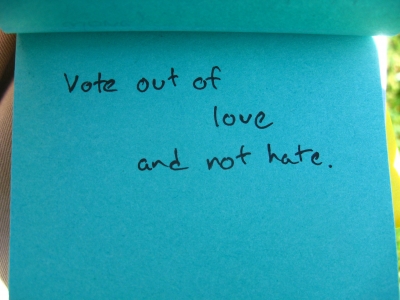 Vote out of
love
and not hate.